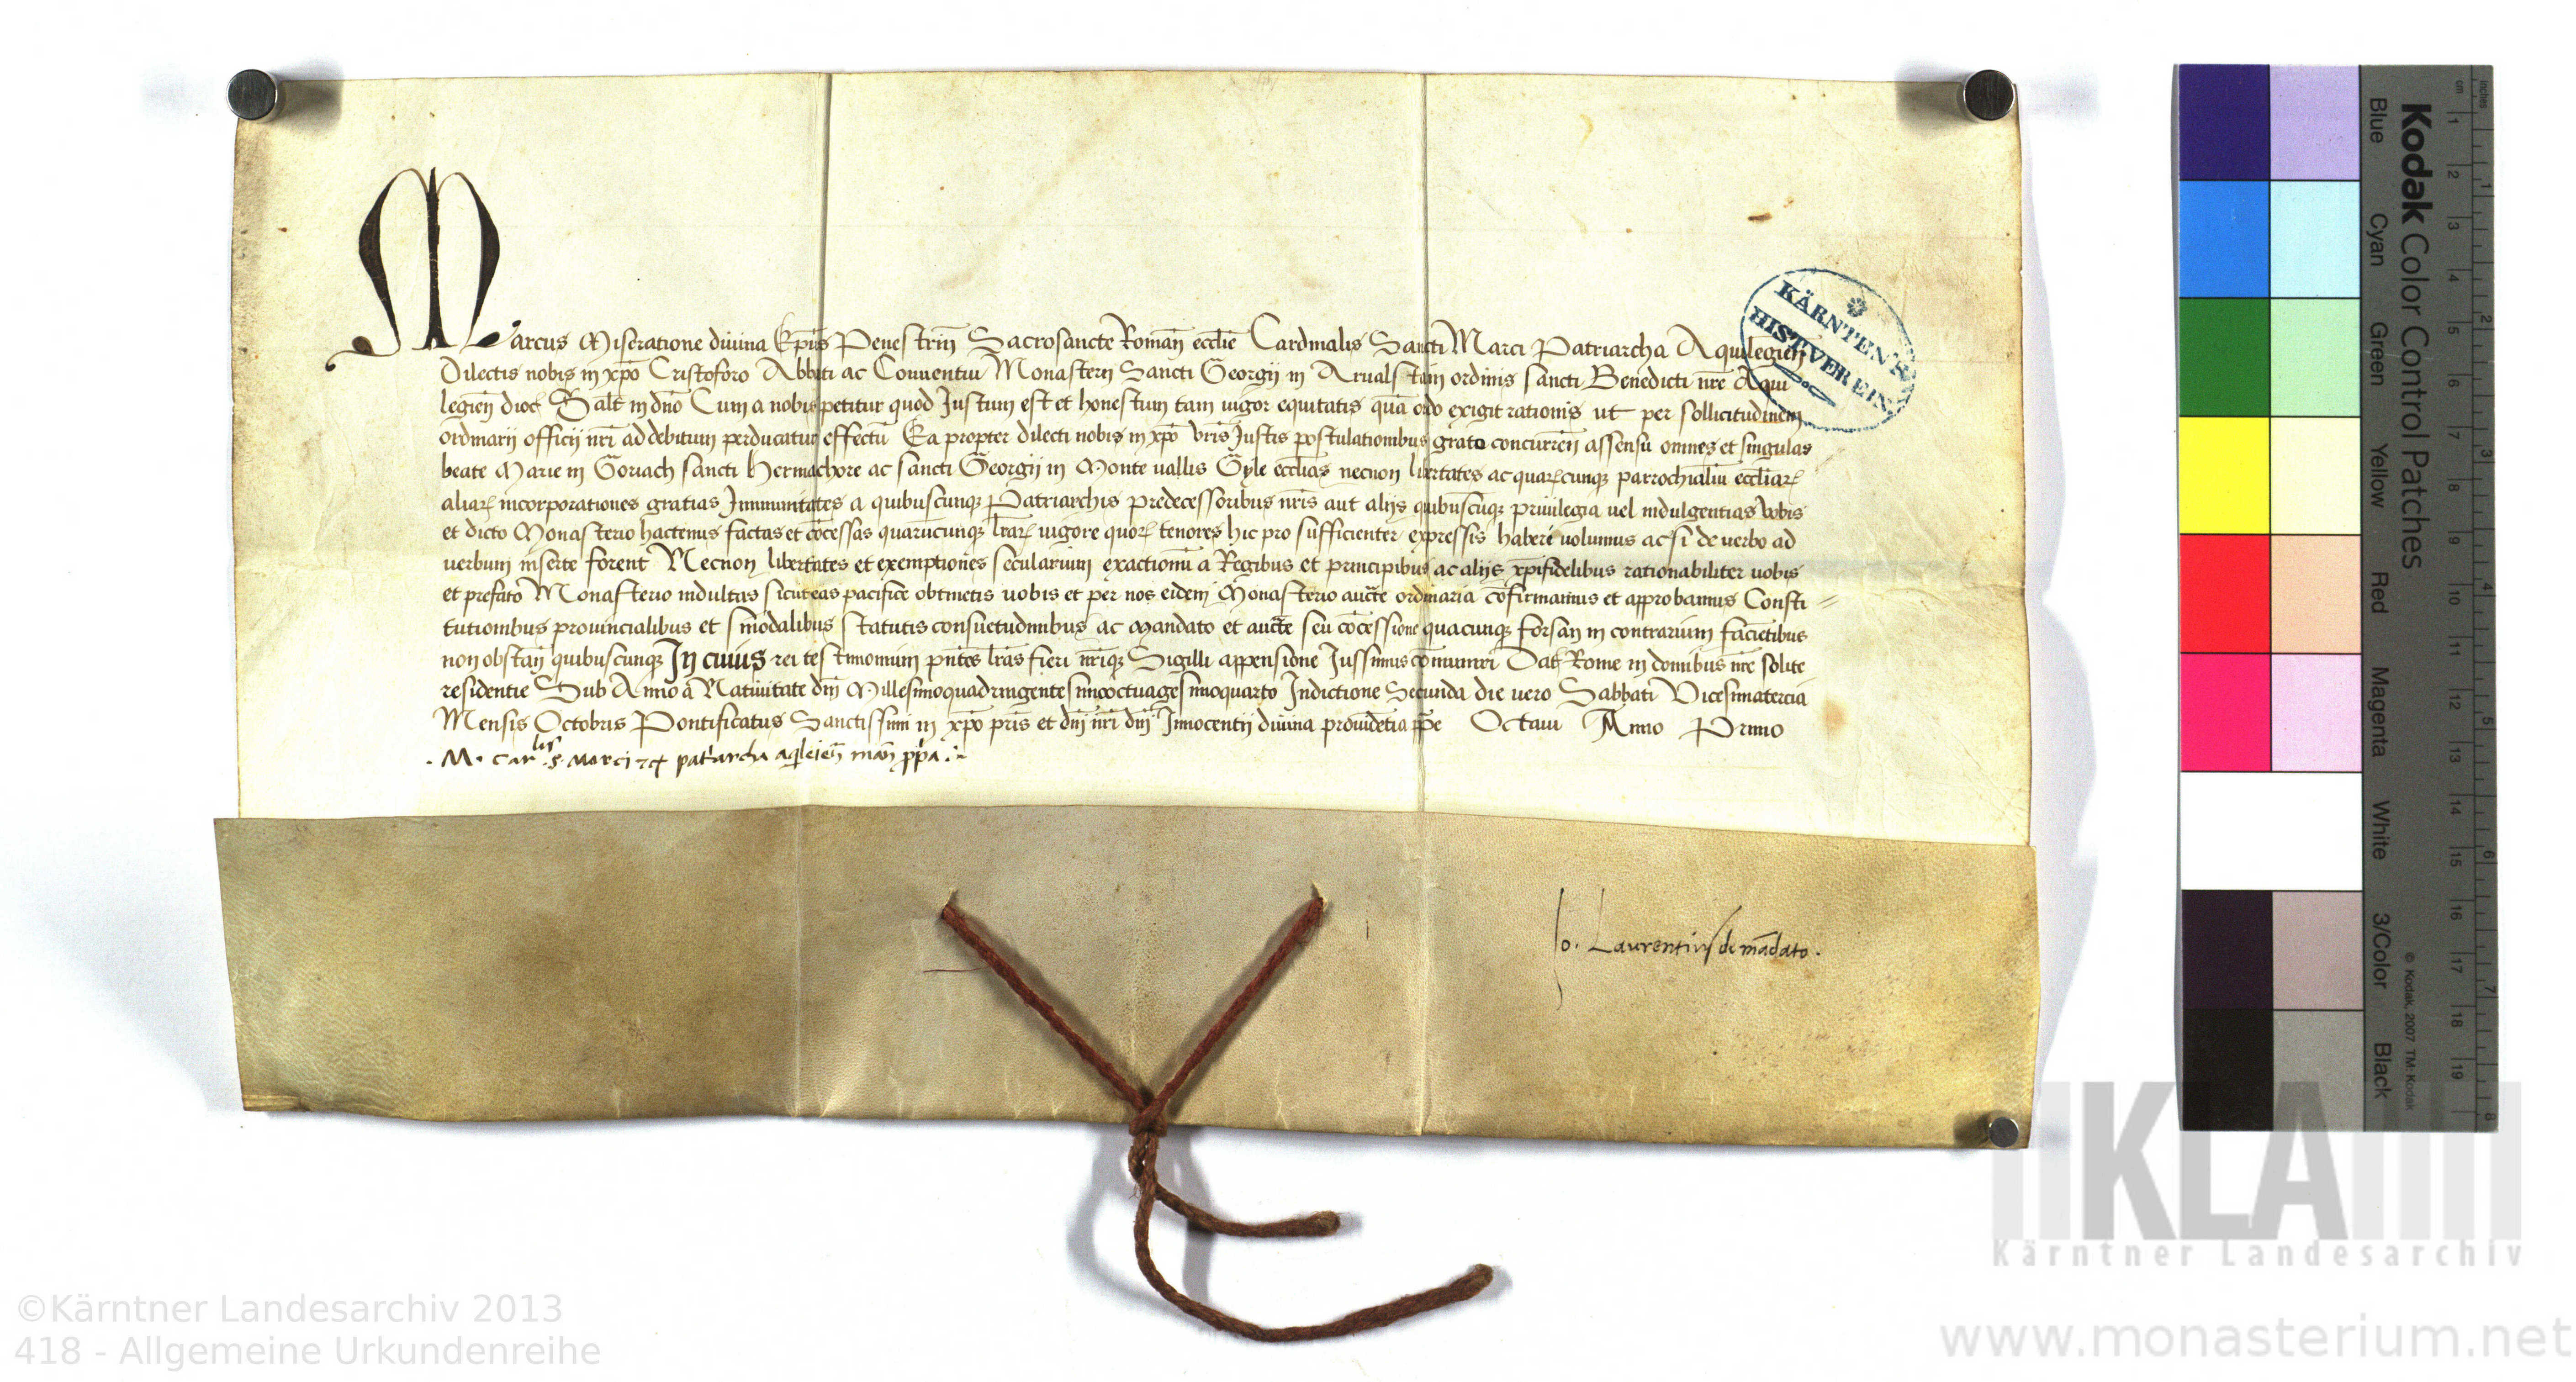 Marcus Miseratione diuina Ep̄us Penestrin̄ Sacrosancte Roman̄ eccl̄ie Cardinalis Sancti Marci Patriarcha Aquilegien̄
Dilectis nobis in xp̄o Cristoforo Abbati ac Conuentui Monasterij Sancti Georgij in Arnalstain ordinis sancti Benedicti nr̄e Aqui
legien̄ dioc̄ Salt̄ in dn̄o Cum a nobis petitur quod Justum est et honestum tam uigor equitatis quā ordo exigit rationis ut per sollicitudinem
ordinarij officij nr̄i ad debitum perducatur effectū Ea propter dilecti nobis in xp̄o vr̄is Justis postulationibus grato concurren̄ assensu omnes et singulas
beate Marie in Goriach sancti Hermachore ac sancti Georgij in Monte uallis Gyle eccl̄ias necnon libertates ac quarꝝcunqꝫ parrochialiū eccl̄iarꝝ
aliarꝝ incorporationes gratias Immunitates a quibuscunqꝫ Patriarchis predecessoribus nr̄is aut alijs quibuscūqꝫ priuilegia uel indulgentias vobis
et dicto Monasterio hactenus factas et cōcessas quarūcunqꝫ lr̄arꝝ uigore quorꝝ tenores hic pro sufficienter expressis haberi uolumus ac si de uerbo ad
uerbum inserte forent Necnon libertates et exemptiones secularium exactionū a Regibus et principibus ac alijs xp̄ifidelibus rationabiliter uobis
et prefato Monasterio indultas sicut eas pacifice obtinetis uobis et per nos eidem Monasterio auct̄e ordinaria cōfirmamus et approbamus Consti
tutionibus prouincialibus et sinodalibus statutis consuetudinibus ac mandato et auct̄e seu cōcessione quacunqꝫ forsan in contrarium faciētibus
non obstan̄ quibuscunqꝫ In cuius rei testimonium pn̄tes lr̄as fieri nr̄iqꝫ Sigilli appensione Jussimus cōmuniri Dat̄ Rome in domibus nr̄e solite
residentie Sub Anno a Natiuitate dn̄i Millesimoquadringentesimooctuagesimoquarto Indictione Secunda die uero Sabbati Vicesimatercia
Mensis Octobris Pontificatus Sanctissimi in xp̄o pr̄is et dn̄i nr̄i dn̄i Innocentij diuina prouidētia pp̄e Octaui Anno Primo
. M. Carlis .S. Marci ⁊c̄ patriarcha aquileien̄ man̄ ppā .
Jo. Laurentius de mādato .
KÄRNTEN'R
HIST. VEREIN.
Kodak Color Control Patches
Blue Cyan Green Yellow Red Magenta White 3/Color Black
© Kodak, 2007 TM: Kodak
cm 1 2 3 4 5 6 7 8 9 10 11 12 13 14 15 16 17 18 19
inches 1 2 3 4 5 6 7 8
KLA
Kärntner Landesarchiv
©Kärntner Landesarchiv 2013
418 - Allgemeine Urkundenreihe
www.monasterium.net